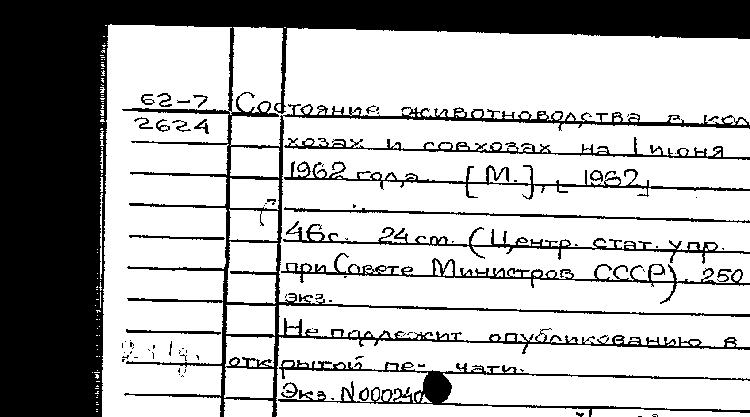 62-7 Состояние животноводства в кол
2624
хозах и совхозах на 1 июня
1962 года. [М.], [1962]
46 с. 24 см. (Центр. стат. упр.
при Совете Министров СССР). 250
экз.
Не подлежит опубликованию в
открытой печати.
Экз. N000240